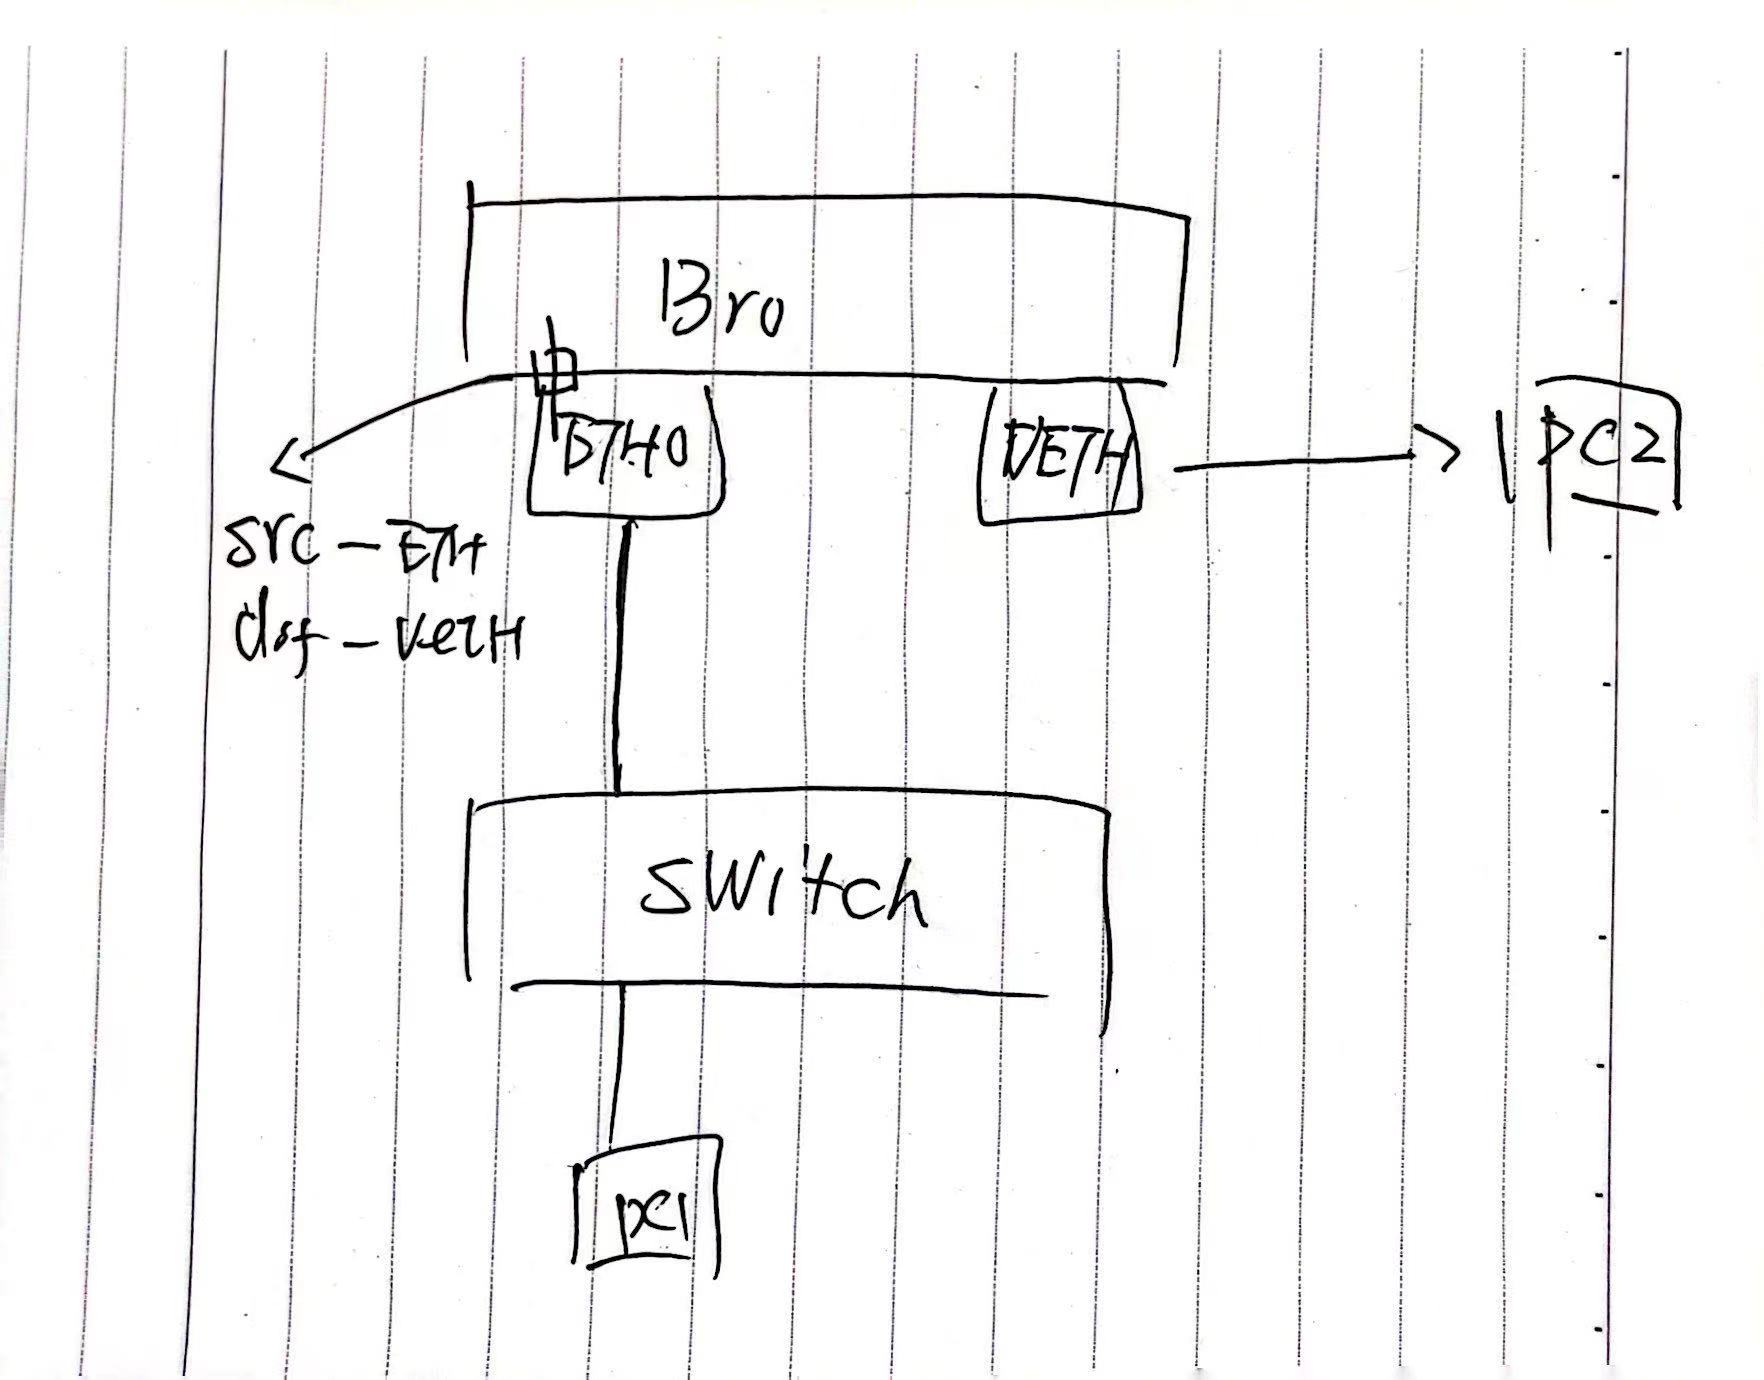 Bro
ETH0
VETH
PC2
src - ETH
dst - VETH
SWitch
PC1